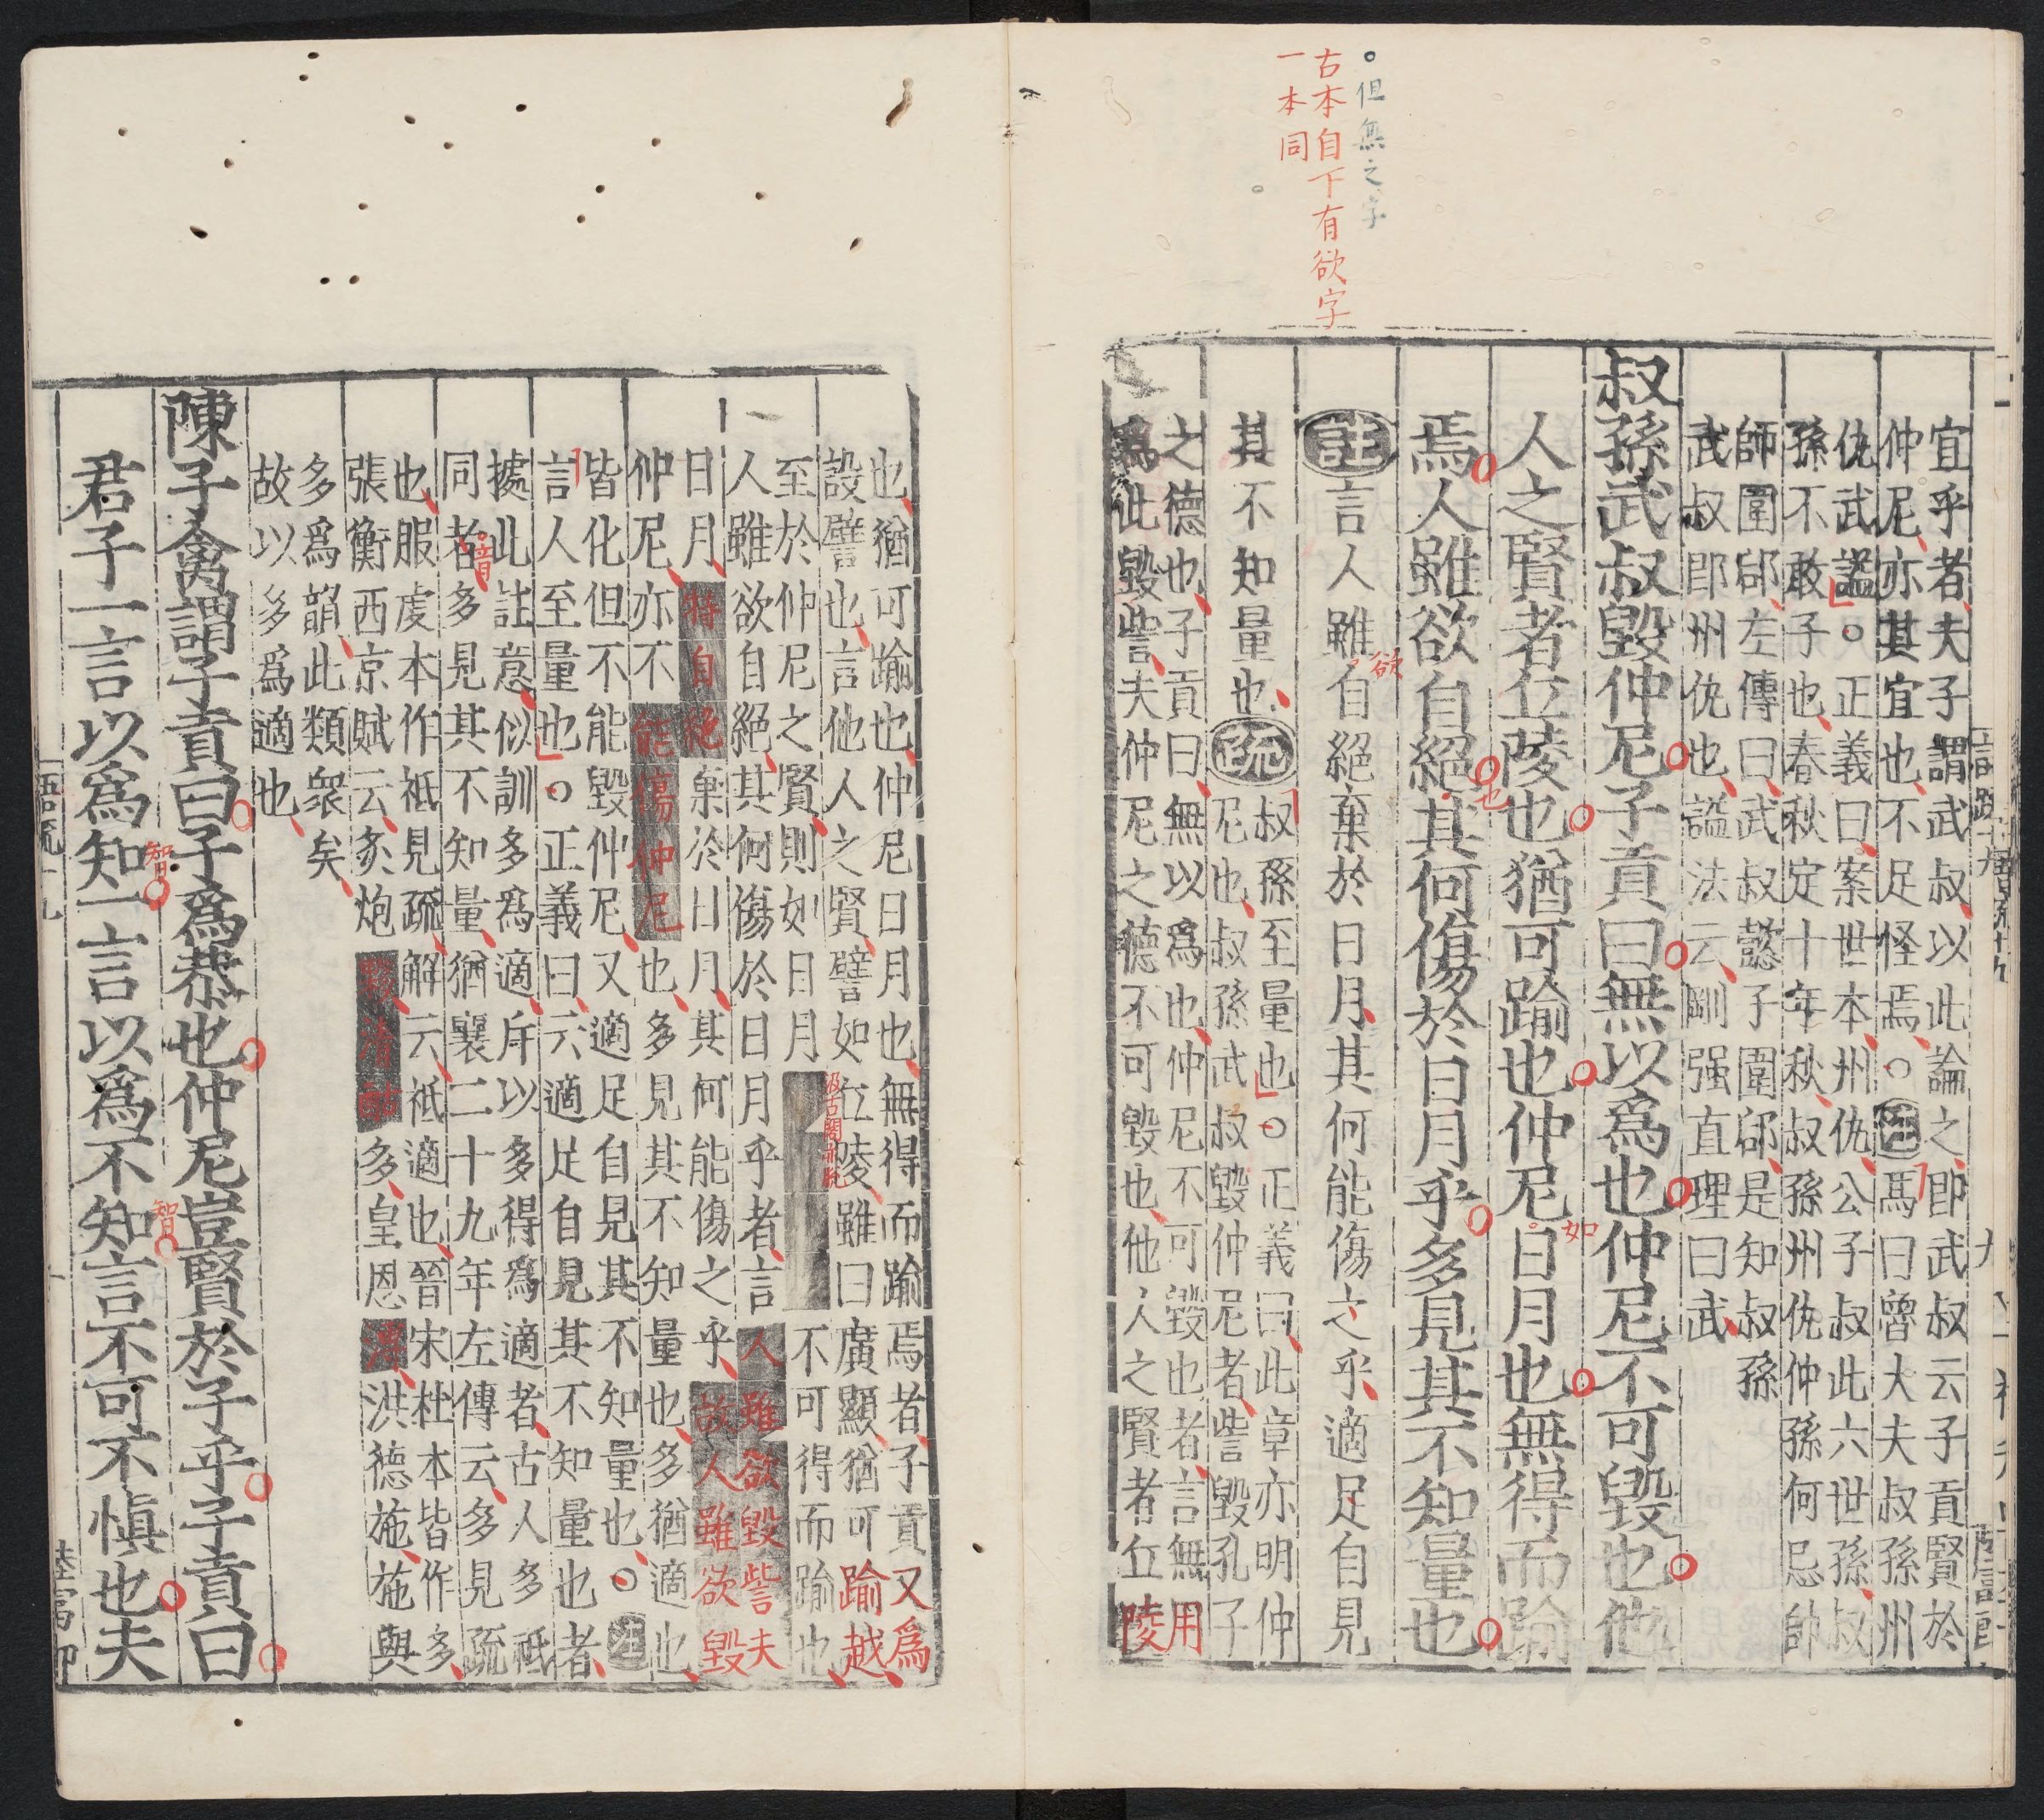 。但無之字
古本自下有欲字
一本同
宜乎者夫子謂武叔以此論之即武叔云子貢賢於
仲尼亦其宜也不足怪焉○註馬曰魯大夫叔孫州
仇武謚○正義曰案世本州仇公子叔此六世孫叔
孫不敢子也春秋定十年秋叔孫州仇仲孫何忌帥
師圍郈左傳曰武叔懿子圍郈是知叔孫
武叔即州仇也謚法云剛强直理曰武
叔孫武叔毀仲尼子貢曰無以爲也仲尼不可毀也他
人之賢者丘陵也猶可踰也仲尼日月也無得而踰
如
焉人雖欲自絕其何傷於日月乎多見其不知量也
也
註言人雖自絕棄於日月其何能傷之乎適足自見
欲
其不知量也疏叔孫至量也○正義曰此章亦明仲
尼也叔孫武叔毀仲尼者訾毀孔子
之德也子貢曰無以爲也仲尼不可毀也者言無用
爲此毀訾夫仲尼之德不可毀也他人之賢者丘陵
也猶可踰也仲尼日月也無得而踰焉者子貢又爲
設譬也言他人之賢譬如丘陵雖曰廣顯猶可踰越
至於仲尼之賢則如日月不可得而踰也
人雖欲自絕其何傷於日月乎者言人雖欲毀訾夫
日月特自絕棄於日月其何能傷之乎故人雖欲毀
仲尼亦不能傷仲尼也多見其不知量也多猶適也
皆化但不能毀仲尼又適足自見其不知量也○註
言人至量也○正義曰云適足自見其不知量也者
據此註意似訓多爲適斥以多得爲適者古人多祗
同者多見其不知量猶襄二十九年左傳云多見疏
音
也服虔本作祗見疏解云祗適也晉宋杜本皆作多
張衡西京賦云炙炮夥清酤多皇恩溥洪德施施與
多爲韻此類衆矣
故以多爲適也
陳子禽謂子貢曰子爲恭也仲尼豈賢於子乎子貢曰
君子一言以爲知一言以爲不知言不可不愼也夫
智
智